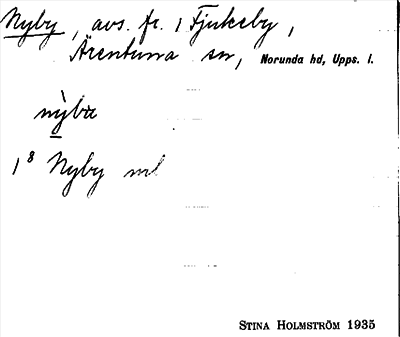 Nyby, avs. fr. 1 Tjukeby,
Ärentuna sn, Norunda hd, Upps. l.
nỳbɯ
1⁸ Nyby ml
STINA HOLMSTRÖM 1935